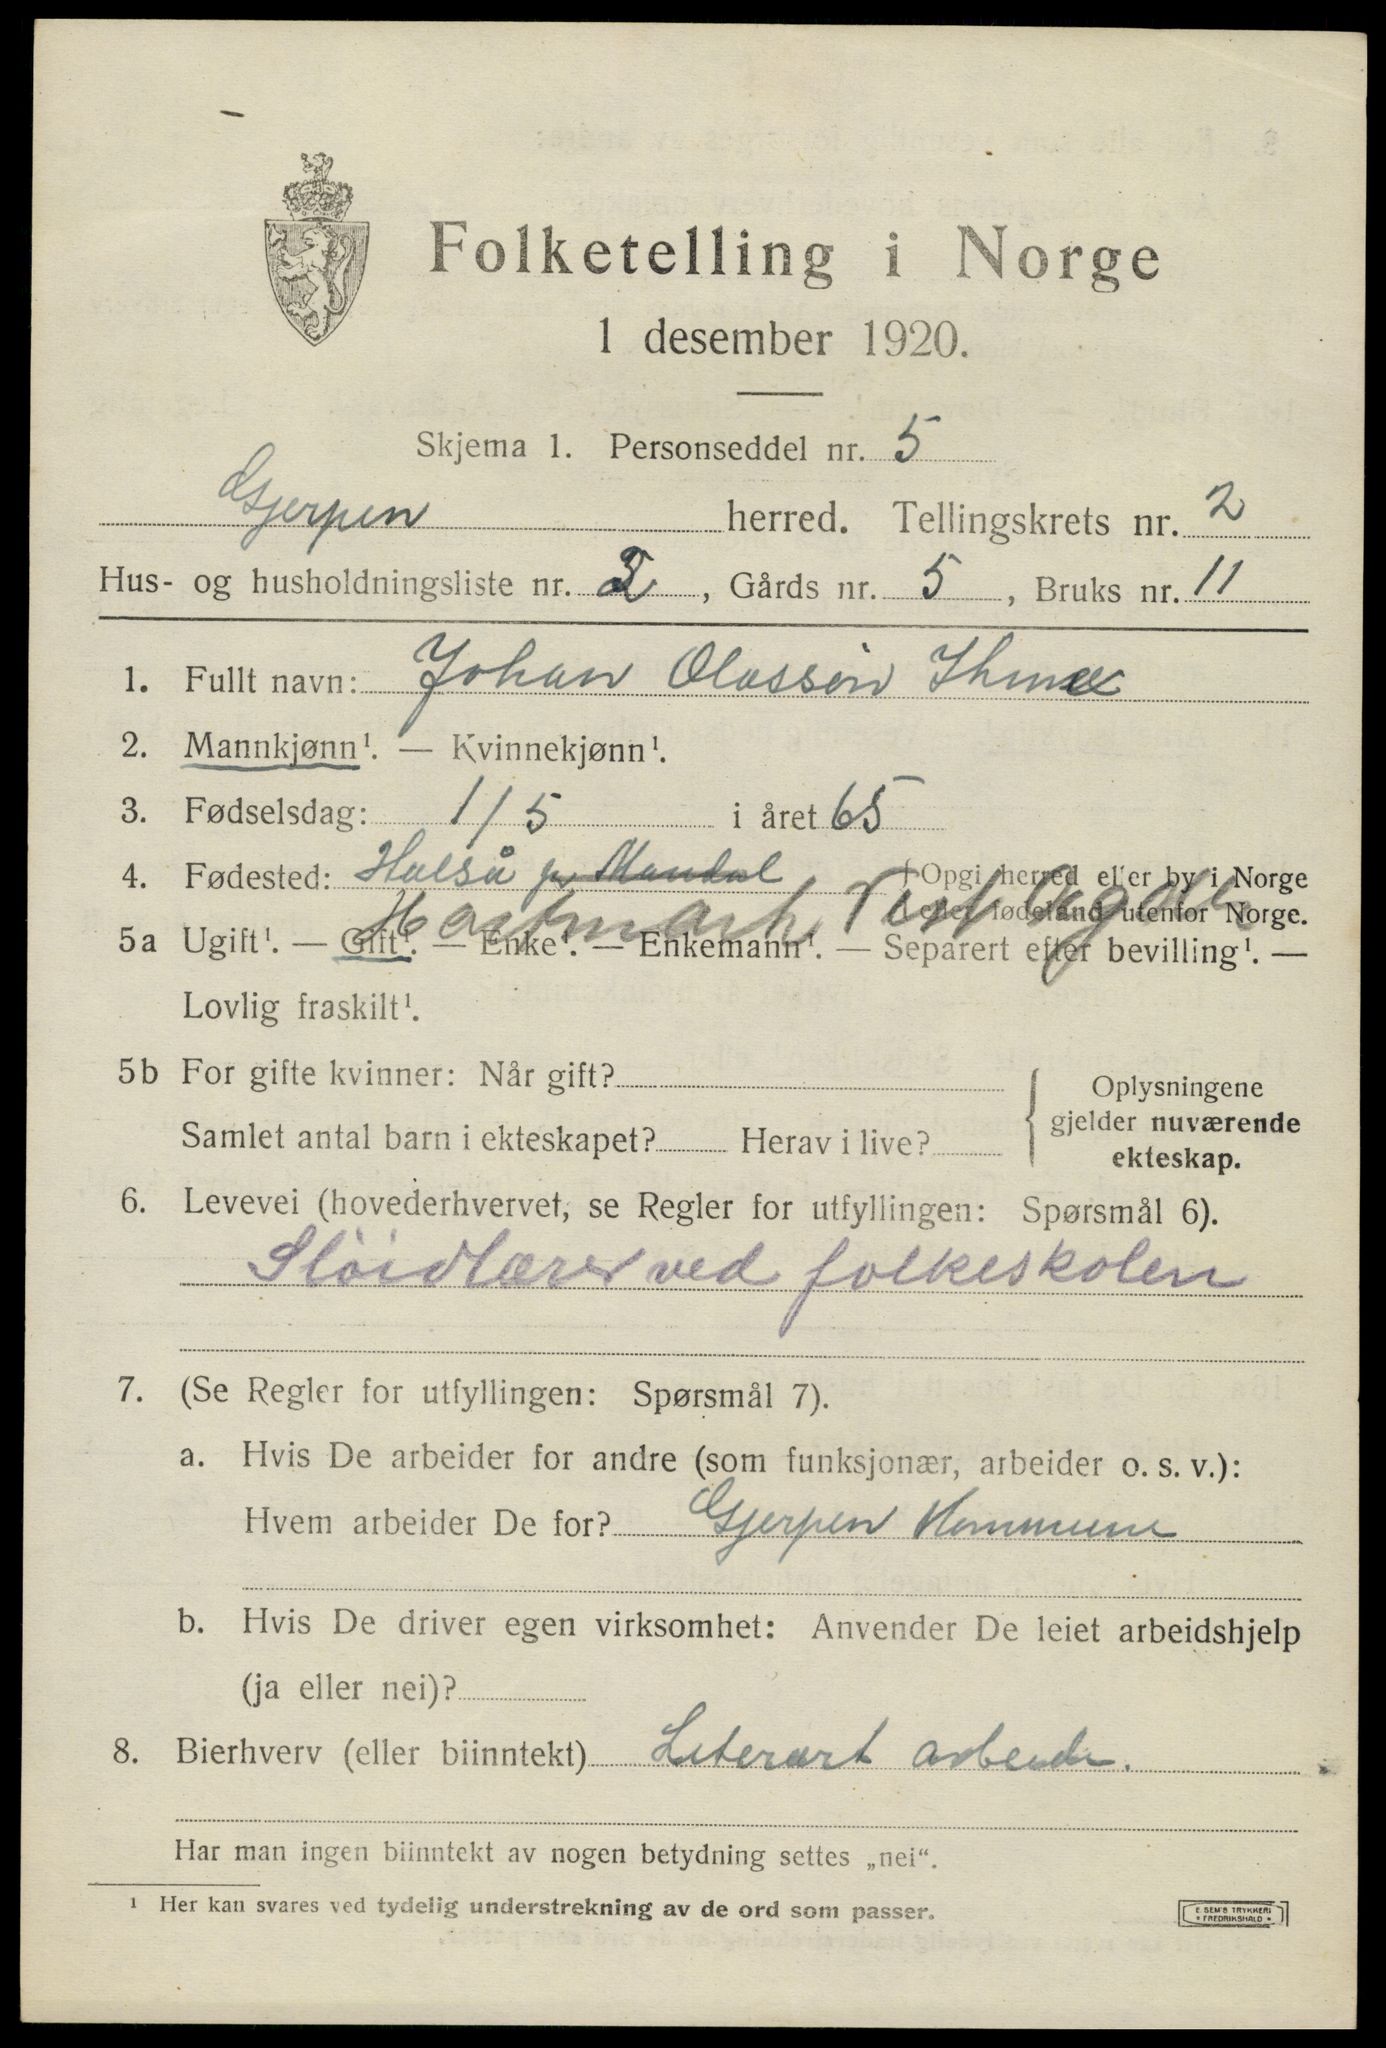 Folketelling i Norge
1 desember 1920.
Skjema 1. Personseddel nr. 5
Gjerpen herred. Tellingskrets nr. 2
Hus- og husholdningsliste nr. 2, Gårds nr. 5, Bruks nr. 11
1. Fullt navn: Johan Olassøn
2. Mannkjønn¹. — Kvinnekjønn¹.
3. Fødselsdag: 1/5 i året 65
4. Fødested: Halså pr Mandal { Opgi herred eller by i Norge
eller fødeland utenfor Norge.
Vest Agder
5a Ugift¹. — Gift¹. — Enke¹. — Enkemann¹. — Separert efter bevilling¹. —
Lovlig fraskilt¹.
5b For gifte kvinner: Når gift?
Samlet antal barn i ekteskapet? Herav i live?
{ Oplysningene
gjelder nuværende
ekteskap.
6. Levevei (hovederhvervet, se Regler for utfyllingen: Spørsmål 6).
Sløidlærer ved folkeskolen
7. (Se Regler for utfyllingen: Spørsmål 7).
a. Hvis De arbeider for andre (som funksjonær, arbeider o. s. v.):
Hvem arbeider De for? Gjerpen Kommune
b. Hvis De driver egen virksomhet: Anvender De leiet arbeidshjelp
(ja eller nei)?
8. Bierhverv (eller biinntekt) Literært arbeide.
Har man ingen biinntekt av nogen betydning settes „nei“.
¹ Her kan svares ved tydelig understrekning av de ord som passer.
E. SEM'S TRYKKERI
• FREDRIKSHALD •